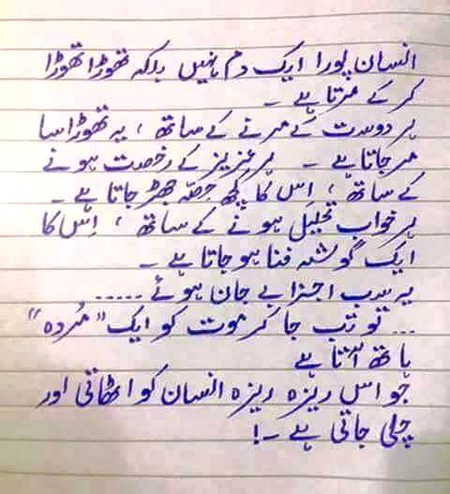 انسان پورا ایک دم نہیں بلکہ تھوڑا تھوڑا
کر کے مرتا ہے ۔
ہر دوست کے مرنے کے ساتھ ، یہ تھوڑا سا
مر جاتا ہے ۔ ہر عزیز کے رخصت ہونے
کے ساتھ ، اِس کا کچھ حِصّہ جھڑ جاتا ہے ۔
ہر خواب تحلیل ہونے کے ساتھ ، اِس کا
ایک گوشہ فنا ہو جاتا ہے ۔
یہ سب اجزا بے جان ہوئے .....
... تو تب جا کر موت کو ایک "مُردہ"
ہاتھ آتا ہے
جو اس ریزہ ریزہ انسان کو اٹھاتی اور
چلی جاتی ہے ۔!